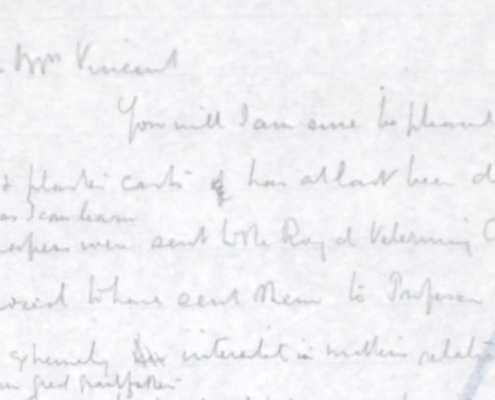 Mrs Vincent
You will I am sure be pleased
plaster casts of has at last been
as I can learn
were sent to the Royal Veterinary C
to have sent them to Professor
extremely interested in matters relati
great grandfather